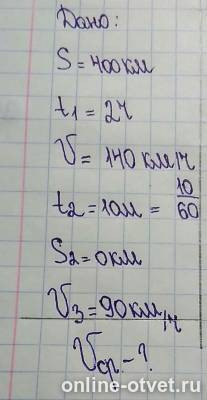 Дано:
S = 400 км
t1 = 2ч
V = 140 км/ч
t2 = 10м = 10/60
S2 = 0 км
V3 = 90 км/ч
Vср - ?
online-otvet.ru